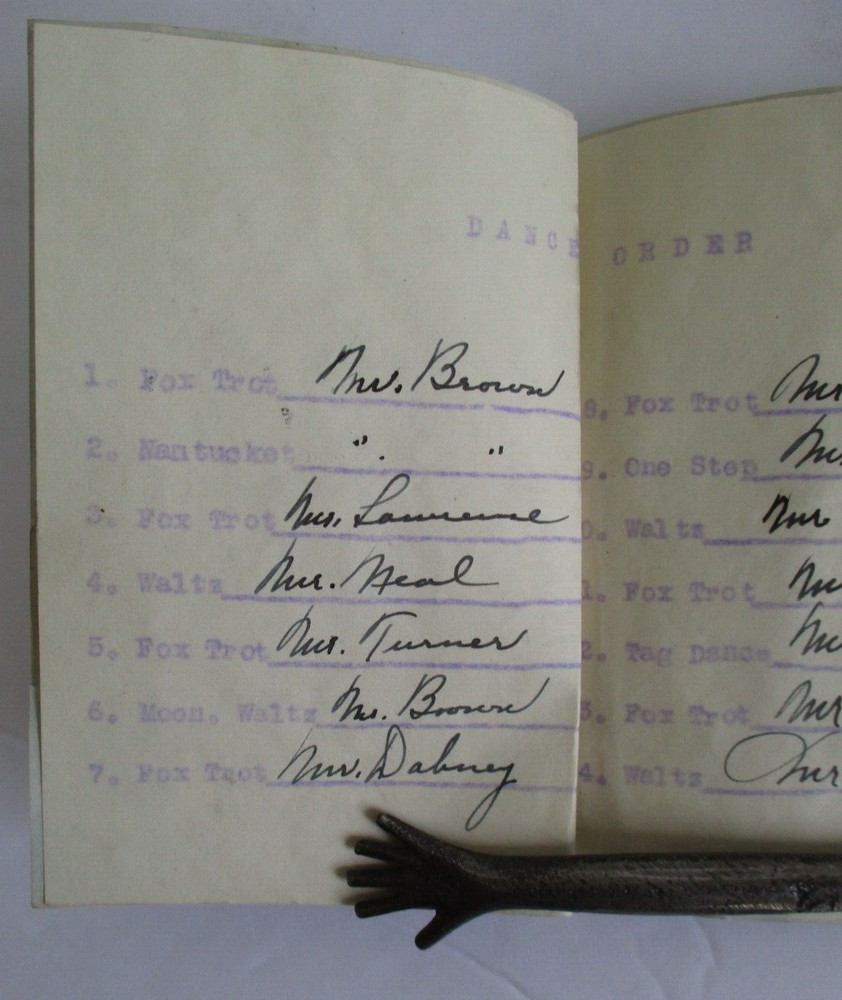 DANCE ORDER
1. Fox Trot Mr. Brown
2. Nantucket " . "
3. Fox Trot Mr. Lawrence
4. Waltz Mr. Neal
5. Fox Trot Mr. Turner
6. Moon. Waltz Mr. Brown
7. Fox Trot Mr. Dabney
8. Fox Trot Mr
9. One Step Mr.
0. Waltz Mr
1. Fox Trot Mr
2. Tag Dance Mr
3. Fox Trot Mr
4. Waltz Mr